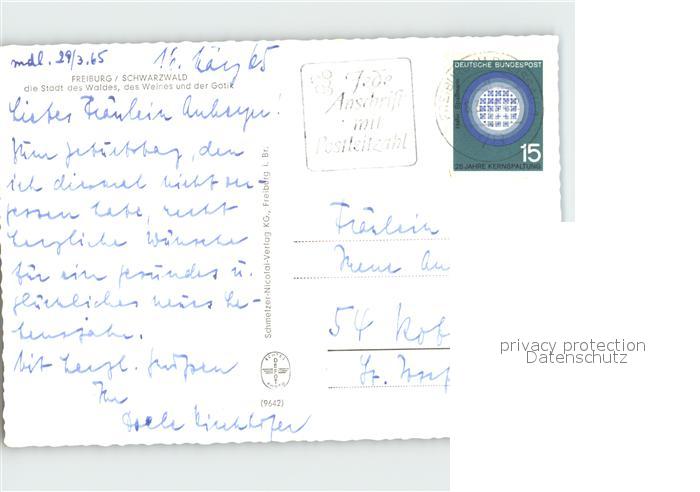 mdl. 29/3.65
16. März 65
FREIBURG / SCHWARZWALD
die Stadt des Waldes, des Weines und der Gotik
Liebes Fräulein
Zum Geburtstag, den
ich diesmal nicht ver-
gessen habe, recht
herzliche Wünsche
für ein gesundes u.
glückliches neues Le-
bensjahr.
Mit herzl. Grüßen
Ihre
Schmelzer-Nicolai-Verlag KG., Freiburg i. Br.
ECHTES
FOTO
(9642)
Jede
Anschrift
mit
Postleitzahl
DEUTSCHE BUNDESPOST
15
25 JAHRE KERNSPALTUNG
Fräulein
54 Kob
St. Josef
privacy protection
Datenschutz